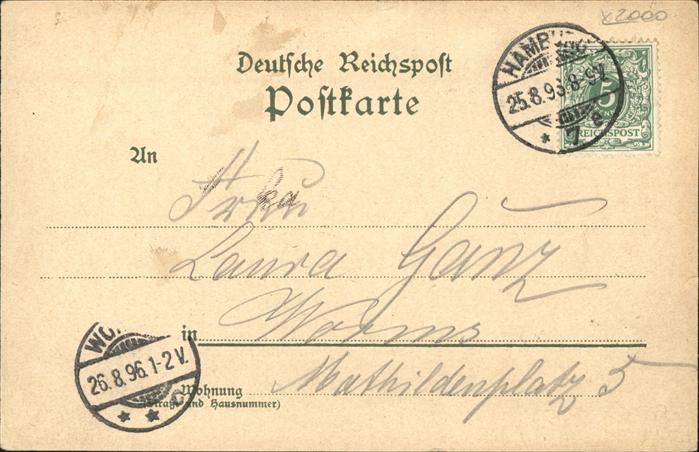 x2000
Deutsche Reichspost
Postkarte
HAMBURG
25.8.96.8-9V.
* 7 e
5
REICHSPOST
An
Frau
Laura Ganz
in Worms
Wohnung Mathildenplatz 5
(Straße und Hausnummer)
WO
26.8.96.1-2V.
* * c